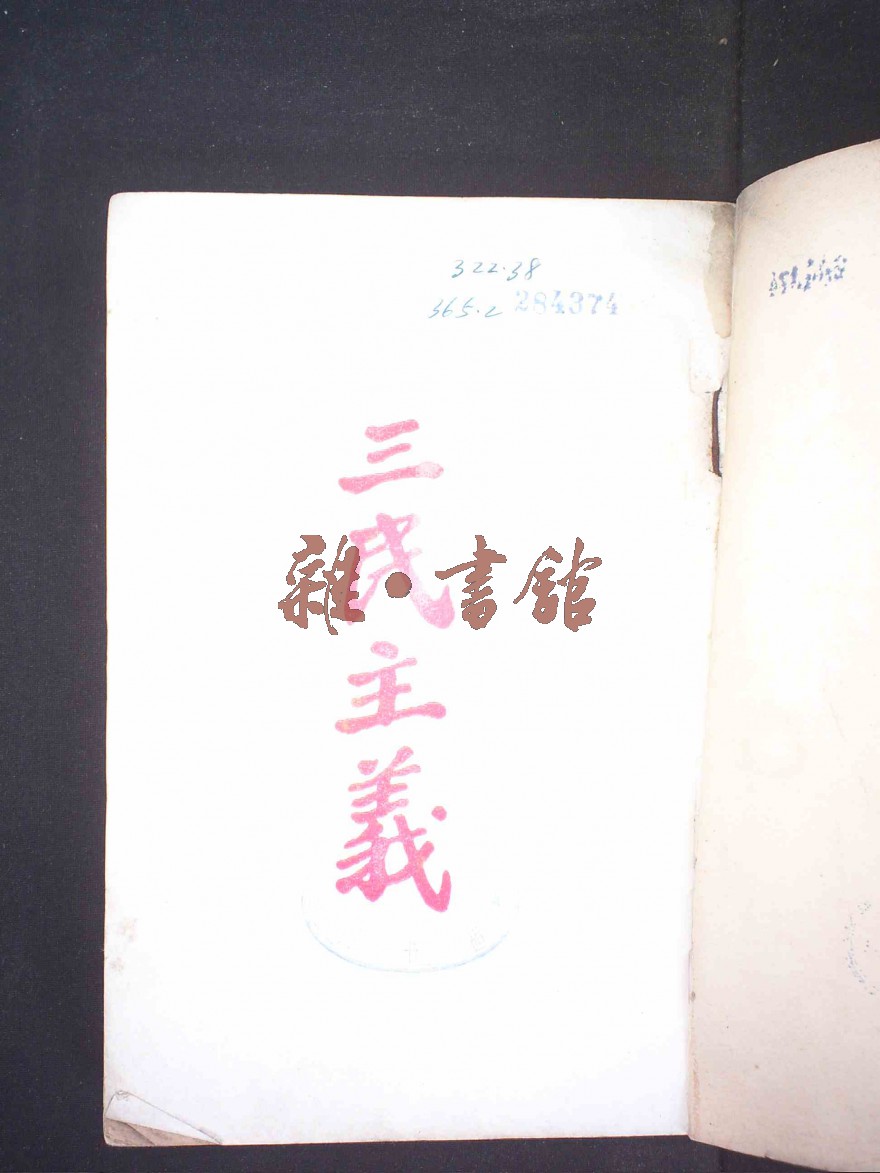 322·38
365·2 284374
三民主義
雜·書館